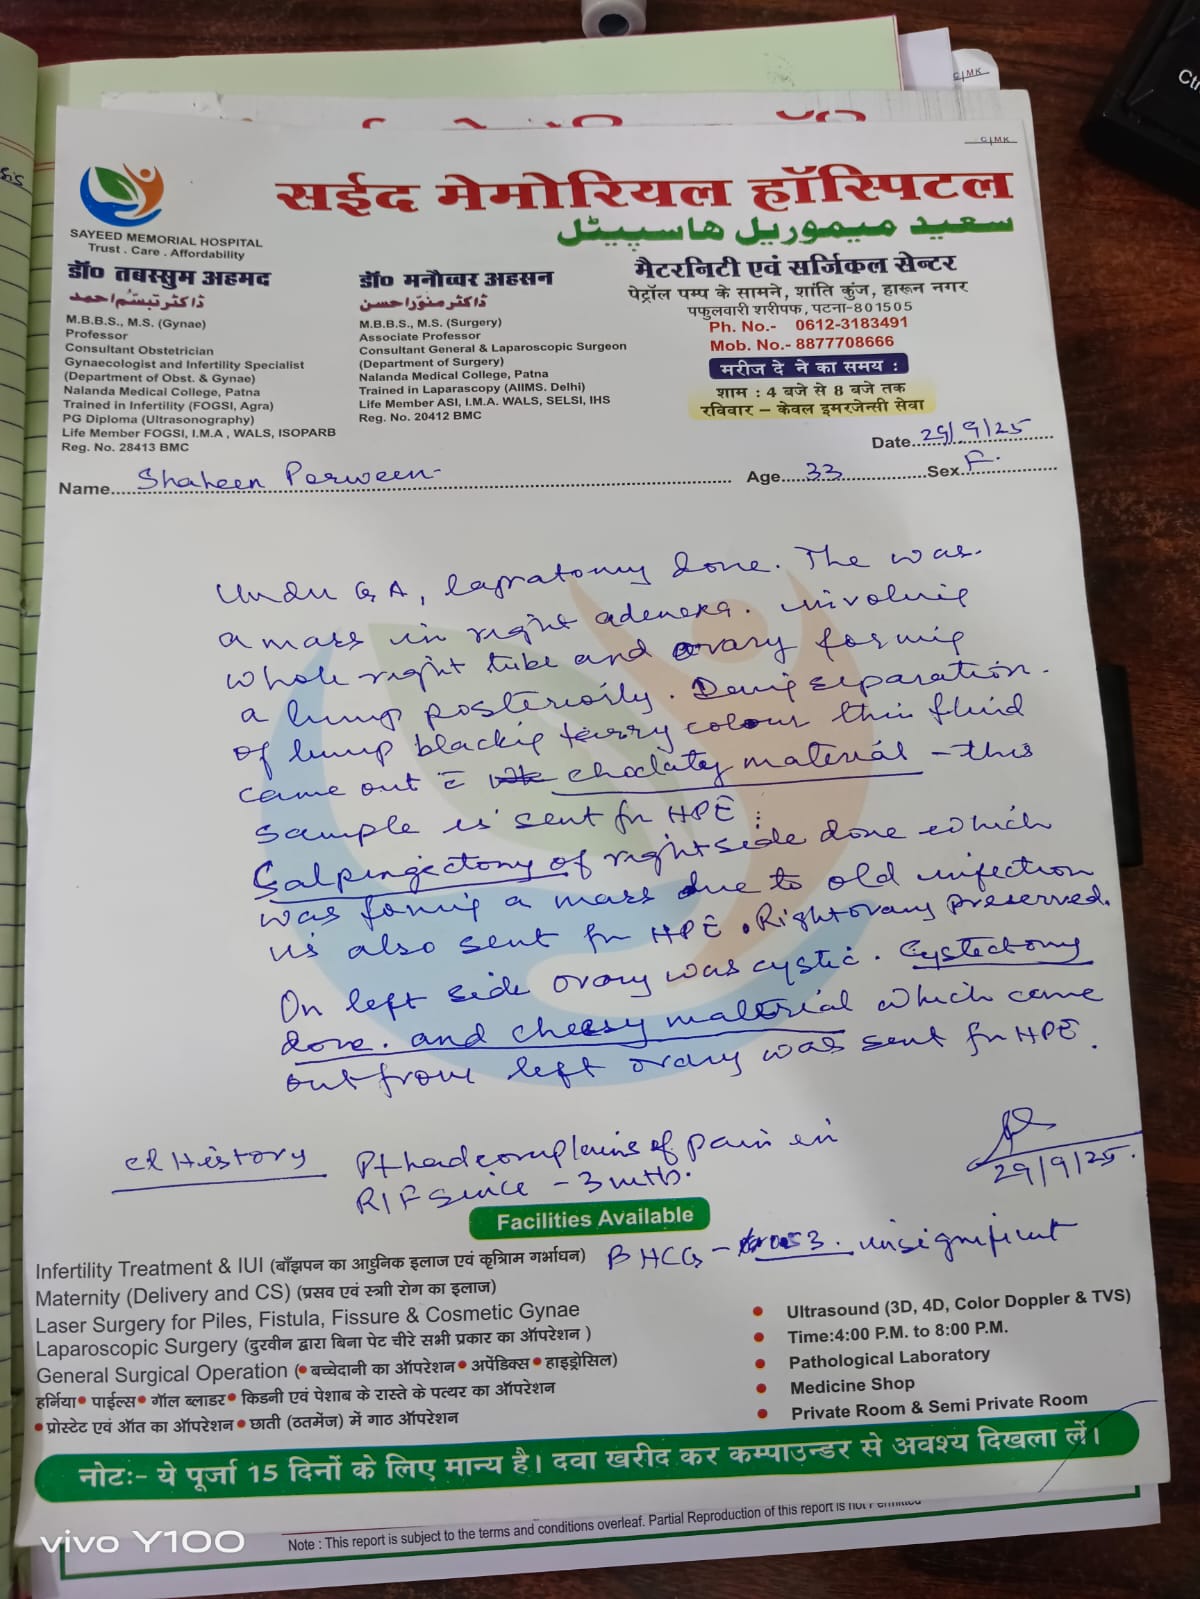 C|MK
C|MK
सईद मेमोरियल हॉस्पिटल
سعید میموریل ھاسپیٹل
SAYEED MEMORIAL HOSPITAL
Trust . Care . Affordability
डॉ० तबस्सुम अहमद
ڈاکٹر تبسّم احمد
M.B.B.S., M.S. (Gynae)
Professor
Consultant Obstetrician
Gynaecologist and Infertility Specialist
(Department of Obst. & Gynae)
Nalanda Medical College, Patna
Trained in Infertility (FOGSI, Agra)
PG Diploma (Ultrasonography)
Life Member FOGSI, I.M.A , WALS, ISOPARB
Reg. No. 28413 BMC
डॉ० मनौव्वर अहसन
ڈاکٹر منوّر احسن
M.B.B.S., M.S. (Surgery)
Associate Professor
Consultant General & Laparoscopic Surgeon
(Department of Surgery)
Nalanda Medical College, Patna
Trained in Laparascopy (AIIMS. Delhi)
Life Member ASI, I.M.A. WALS, SELSI, IHS
Reg. No. 20412 BMC
मैटरनिटी एवं सर्जिकल सेन्टर
पेट्रॉल पम्प के सामने, शांति कुंज, हारून नगर
पफुलवारी शरीपफ, पटना-801505
Ph. No.- 0612-3183491
Mob. No.- 8877708666
मरीज दे ने का समय :
शाम : 4 बजे से 8 बजे तक
रविवार – केवल इमरजेन्सी सेवा
Date 29/9/25
Name Shaheen Perween Age 33 Sex F.
Under GA, lapratomy done. The was
a mass in right adenexa. involving
whole right tube and ovary forming
a lump posteriorily. During separation
of lump blackis tarry colour thin fluid
came out c̄ choclaty material – this
sample is sent for HPE :
Salpingectomy of right side done which
was foming a mass due to old infection
is also sent for HPE. Right ovary preserved.
On left side ovary was cystic. Cystectomy
done. and cheesy material which came
out from left ovary was sent for HPE.
29/9/25.
cl History Pt had complains of pain in
RIF since – 3 mth.
BHCG – 3. insignificant
Facilities Available
Infertility Treatment & IUI (बाँझपन का आधुनिक इलाज एवं कृत्रिाम गर्भाधन)
Maternity (Delivery and CS) (प्रसव एवं स्त्राी रोग का इलाज)
Laser Surgery for Piles, Fistula, Fissure & Cosmetic Gynae
Laparoscopic Surgery (दुरवीन द्वारा बिना पेट चीरे सभी प्रकार का ऑपरेशन )
General Surgical Operation (•बच्चेदानी का ऑपरेशन• अपेंडिक्स•हाइड्रोसिल)
हर्निया• पाईल्स• गॉल ब्लाडर• किडनी एवं पेशाब के रास्ते के पत्थर का ऑपरेशन
•प्रोस्टेट एवं ऑत का ऑपरेशन• छाती (ठतमेंज) में गाठ ऑपरेशन
• Ultrasound (3D, 4D, Color Doppler & TVS)
• Time:4:00 P.M. to 8:00 P.M.
• Pathological Laboratory
• Medicine Shop
• Private Room & Semi Private Room
नोटः- ये पूर्जा 15 दिनों के लिए मान्य है। दवा खरीद कर कम्पाउन्डर से अवश्य दिखला लें।
Note : This report is subject to the terms and conditions overleaf. Partial Reproduction of this report is not Permitted
vivo Y100